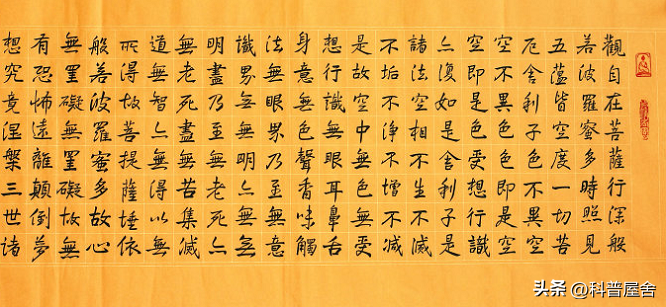 觀自在菩薩行深般
若波羅蜜多時照見
五蘊皆空度一切苦
厄舍利子色不異空
空不異色色即是空
空即是色受想行識
亦復如是舍利子是
諸法空相不生不滅
不垢不淨不增不減
是故空中無色無受
想行識無眼耳鼻舌
身意無色聲香味觸
法無眼界乃至無意
識界無無明亦無無
明盡乃至無老死亦
無老死盡無苦集滅
道無智亦無得以無
所得故菩提薩埵依
般若波羅蜜多故心
無罣礙無罣礙故無
有恐怖遠離顛倒夢
想究竟涅槃三世諸
头条 @科普屋舍